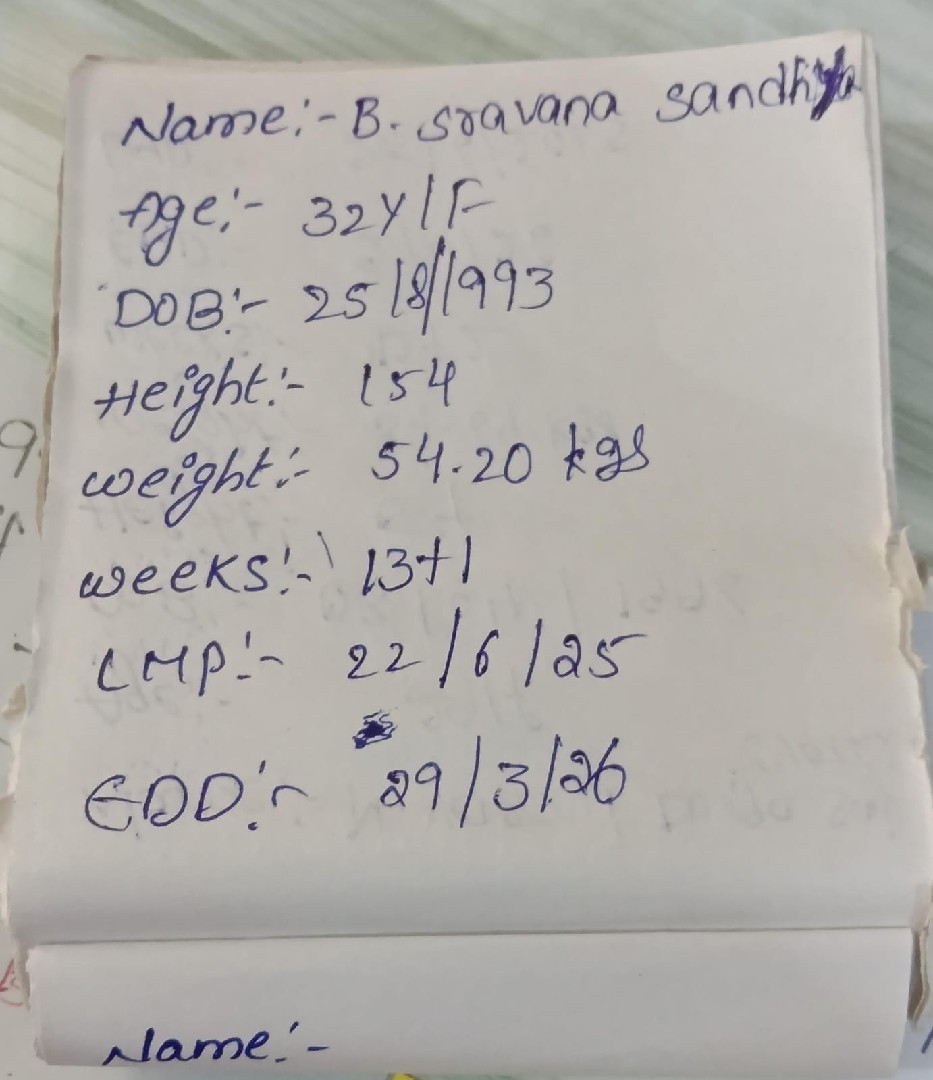 Name:- B. sravana sandhya
Age:- 32Y/F
DOB:- 25/8/1993
Height:- 154
weight:- 54.20 kgs
weeks:- 13+1
LMP:- 22/6/25
EDD:- 29/3/26
Name:-